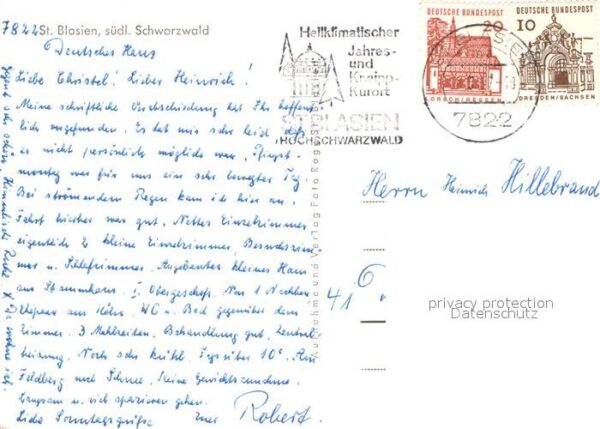 7822 St. Blasien, südl. Schwarzwald
Deutsches Haus
Liebe Christel! Lieber Heinrich!
Meine schriftliche Verabschiedung hat Ihr hoffent-
lich vorgefunden. Es tat mir sehr leid, daß
es nicht persönlich möglich war. Pfingst-
montag war für uns ein sehr bewegter Tag.
Bei strömendem Regen kam ich hier an.
Fahrt hierher war gut. Nettes Einzelzimmer,
eigentlich 2 kleine Einzelzimmer,
mer u. Schlafzimmer. Angebautes kleines Haus
am Stammhaus. I. Obergeschoß. Nur 1 Nachbar
Ehepaar aus Köln. WC u. Bad gegenüber dem
Zimmer. 3 Mahlzeiten. Behandlung gut. Zentral
heizung. Noch sehr kühl. Tagsüber 10°. Am
Feldberg noch Schnee. Meine Gewichtszunahme
langsam u. viel spazieren gehen.
Liebe Sonntagsgrüße Euer Robert.
Himmlische Ruhe X Da wohne ich.
Aufnahme und Verlag Foto
Heilklimatischer
Jahres-
und
Kneipp-
Kurort
ST BLASIEN
HOCHSCHWARZWALD
7822
DEUTSCHE BUNDESPOST
20
LORSCH/HESSEN
DEUTSCHE BUNDESPOST
10
DRESDEN/SACHSEN
Herrn Heinrich Hillebrand
416
privacy protection
Datenschutz